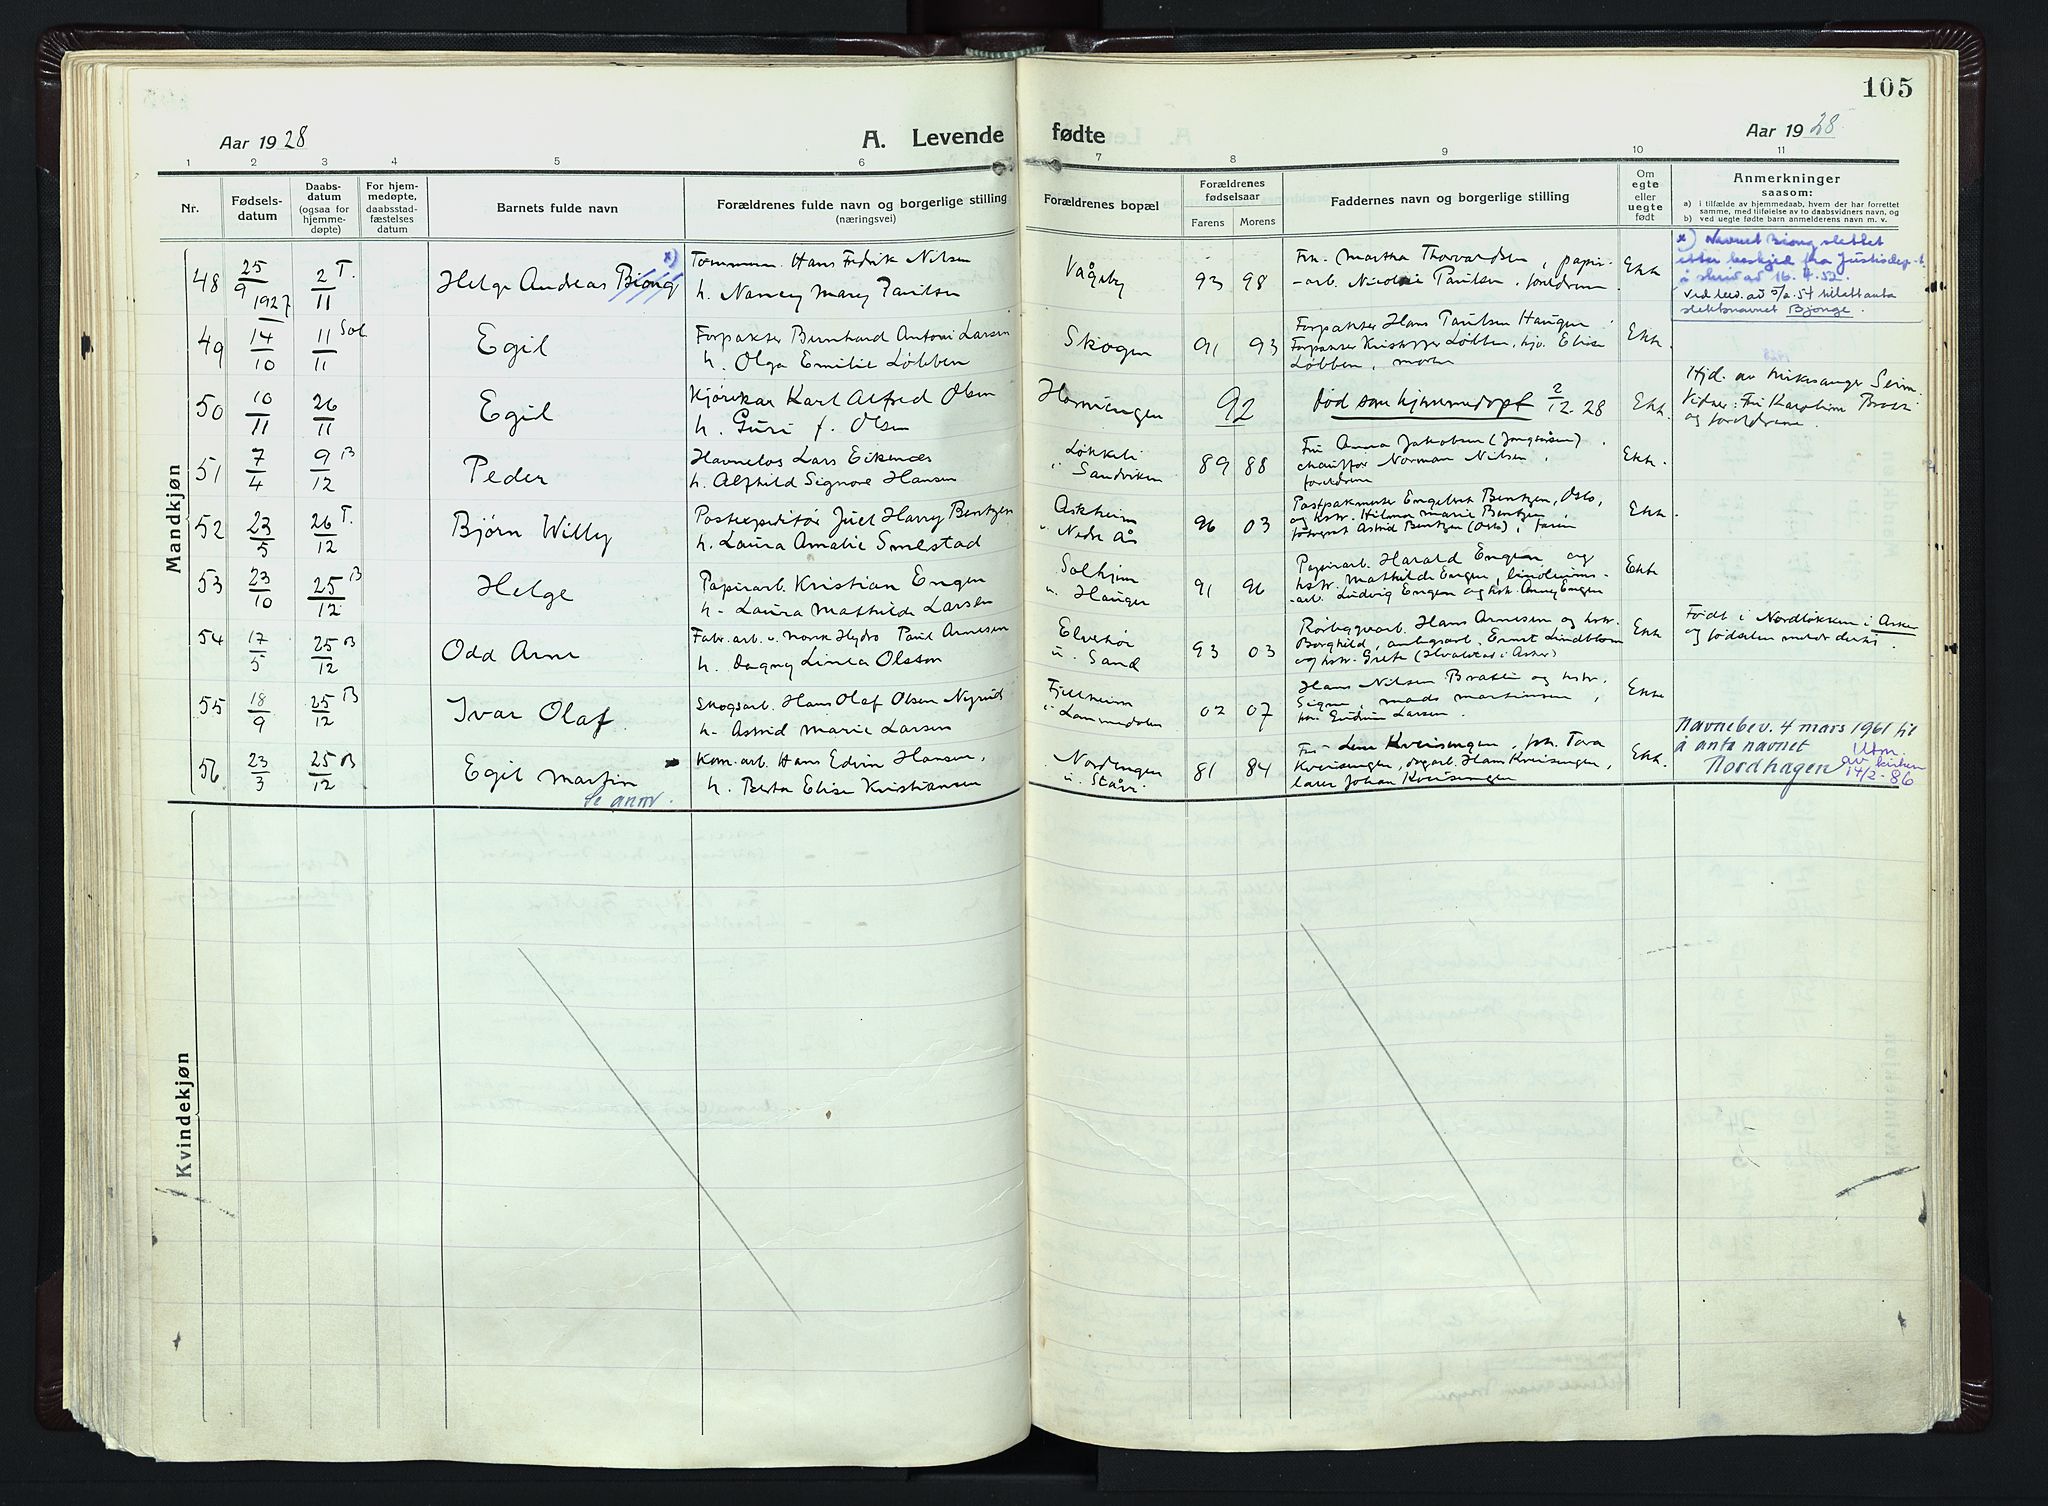 105
Aar 1928
A. Levende fødte
Aar 1928
1 2 3 4 5 6 7 8 9 10 11
Nr.
Fødsels-
datum
Daabs-
datum
(ogsaa for
hjemme-
døpte)
For hjem-
medøpte,
daabsstad-
fæstelses
datum
Barnets fulde navn
Forældrenes fulde navn og borgerlige stilling
(næringsvei)
Forældrenes bopæl
Forældrenes
fødselsaar
Farens Morens
Faddernes navn og borgerlige stilling
Om
egte
eller
uegte
født
Anmerkninger
saasom:
a) i tilfælde av hjemmedaab, hvem der har forrettet
samme, med tilføielse av to daabsvidners navn, og
b) ved uegte fødte barn anmelderens navn m. v.
Mandkjøn
48 25/9 1927 2/11 T. Helge Andreas Biong x)
Tømmerm. Hans Fredrik Nilsen
h. Nancy Mary Paulsen
Vågeby 93 98
Frk. Martha Thorvaldsen, papir-
-arb. Nicolai Paulsen, foreldrene
Ekte
x) Navnet Biong slettet
etter beskjed fra Justisdep-t.
i skriv av 16.4.52.
ved bev. av 5/2.54 tillatt anta
slektsnavnet Bjonge.
49 14/10 11/11 Sol Egil
Forpakter Bernhard Antoni Larsen
h. Olga Emilie Løbben
Skogen 91 93
Forpakter Hans Paulsen Haugen
Forpakter Kristoffer Løbben, hjv. Elise
Løbben, moren
Ekte.
50 10/11 26/11 Egil
Kjørekar Karl Alfred Olsen
h. Guri f. Olsen
92
Død som hjemmedøpt 2/12.28
Ekte.
1928
Hjd. av kirkesanger Seim.
Vidner: Fru Karoline
og foreldrene.
51 7/4 9/12 B Peder
Havnelos Lars Eikenæs
h. Alfhild Signore Hansen
Løkkeli
i Sandviken
89 88
Fru Anna Jakobsen
chauffør Norman Nilsen,
foreldrene
Ekte.
52 23/5 26/12 T. Bjørn Willy
Postexpeditør Juel Harry Bentzen
h. Laura Amalie Smestad
Askheim
u. Nedre Ås
96 03
Postpakmester Engebret Bentzen, Oslo,
og hstr. Hilma Marie Bentzen,
Astrid Bentzen (Oslo), faren
Ekte.
53 23/10 25/12 B Helge
Papirarb. Kristian Engen
h. Laura Mathilde Larsen
Solhjem
u. Haugen
91 96
Papirarb. Harald Engen og
hstr. Mathilde Engen,
-arb. Ludvig Engen og hstr. Anny Engen
Ekte
54 17/5 25/12 B Odd Arne
Fabr. arb. v. Norsk Hydro Paul Arnesen
h. Dagny Linea Olsson
u. Sand
93 03
Rørleggerarb. Hans Arnesen og hstr.
Borghild, anlegsarb. Ernst Lindblom
og hstr. Grete (Hvalstad i Asker)
Ekte
Født i Nordløkken i Asker
og fødselen meldt dertil.
55 18/9 25/12 B Ivar Olaf
Skogsarb. Hans Olaf Olsen Nyrud
h. Astrid Marie Larsen
Fjellheim
i Lommedalen
02 07
Hans Nilsen Brakli og hstr.
Signe, Mads Martinsen,
frk. Gudrun Larsen.
Ekte
56 23/3 25/12 B Egil Martin
se anm.
Kom. arb. Hans Edvin Hansen,
h. Berta Elise Kristiansen
Nordengen
u. Stårr
81 84
Fru Lena Kveisengen, frk. Tora
Kveisengen, Hans Kveisengen,
lærer Johan Kveisengen
Ekte.
Navnebev. 4 mars 1961 til
å anta navnet
Nordhagen
Utm.
av kirken
14/2-86
Kvindekjøn